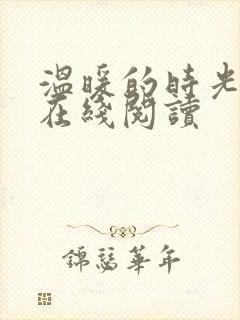 温暖的時光
在綫閱讀
錦瑟華年